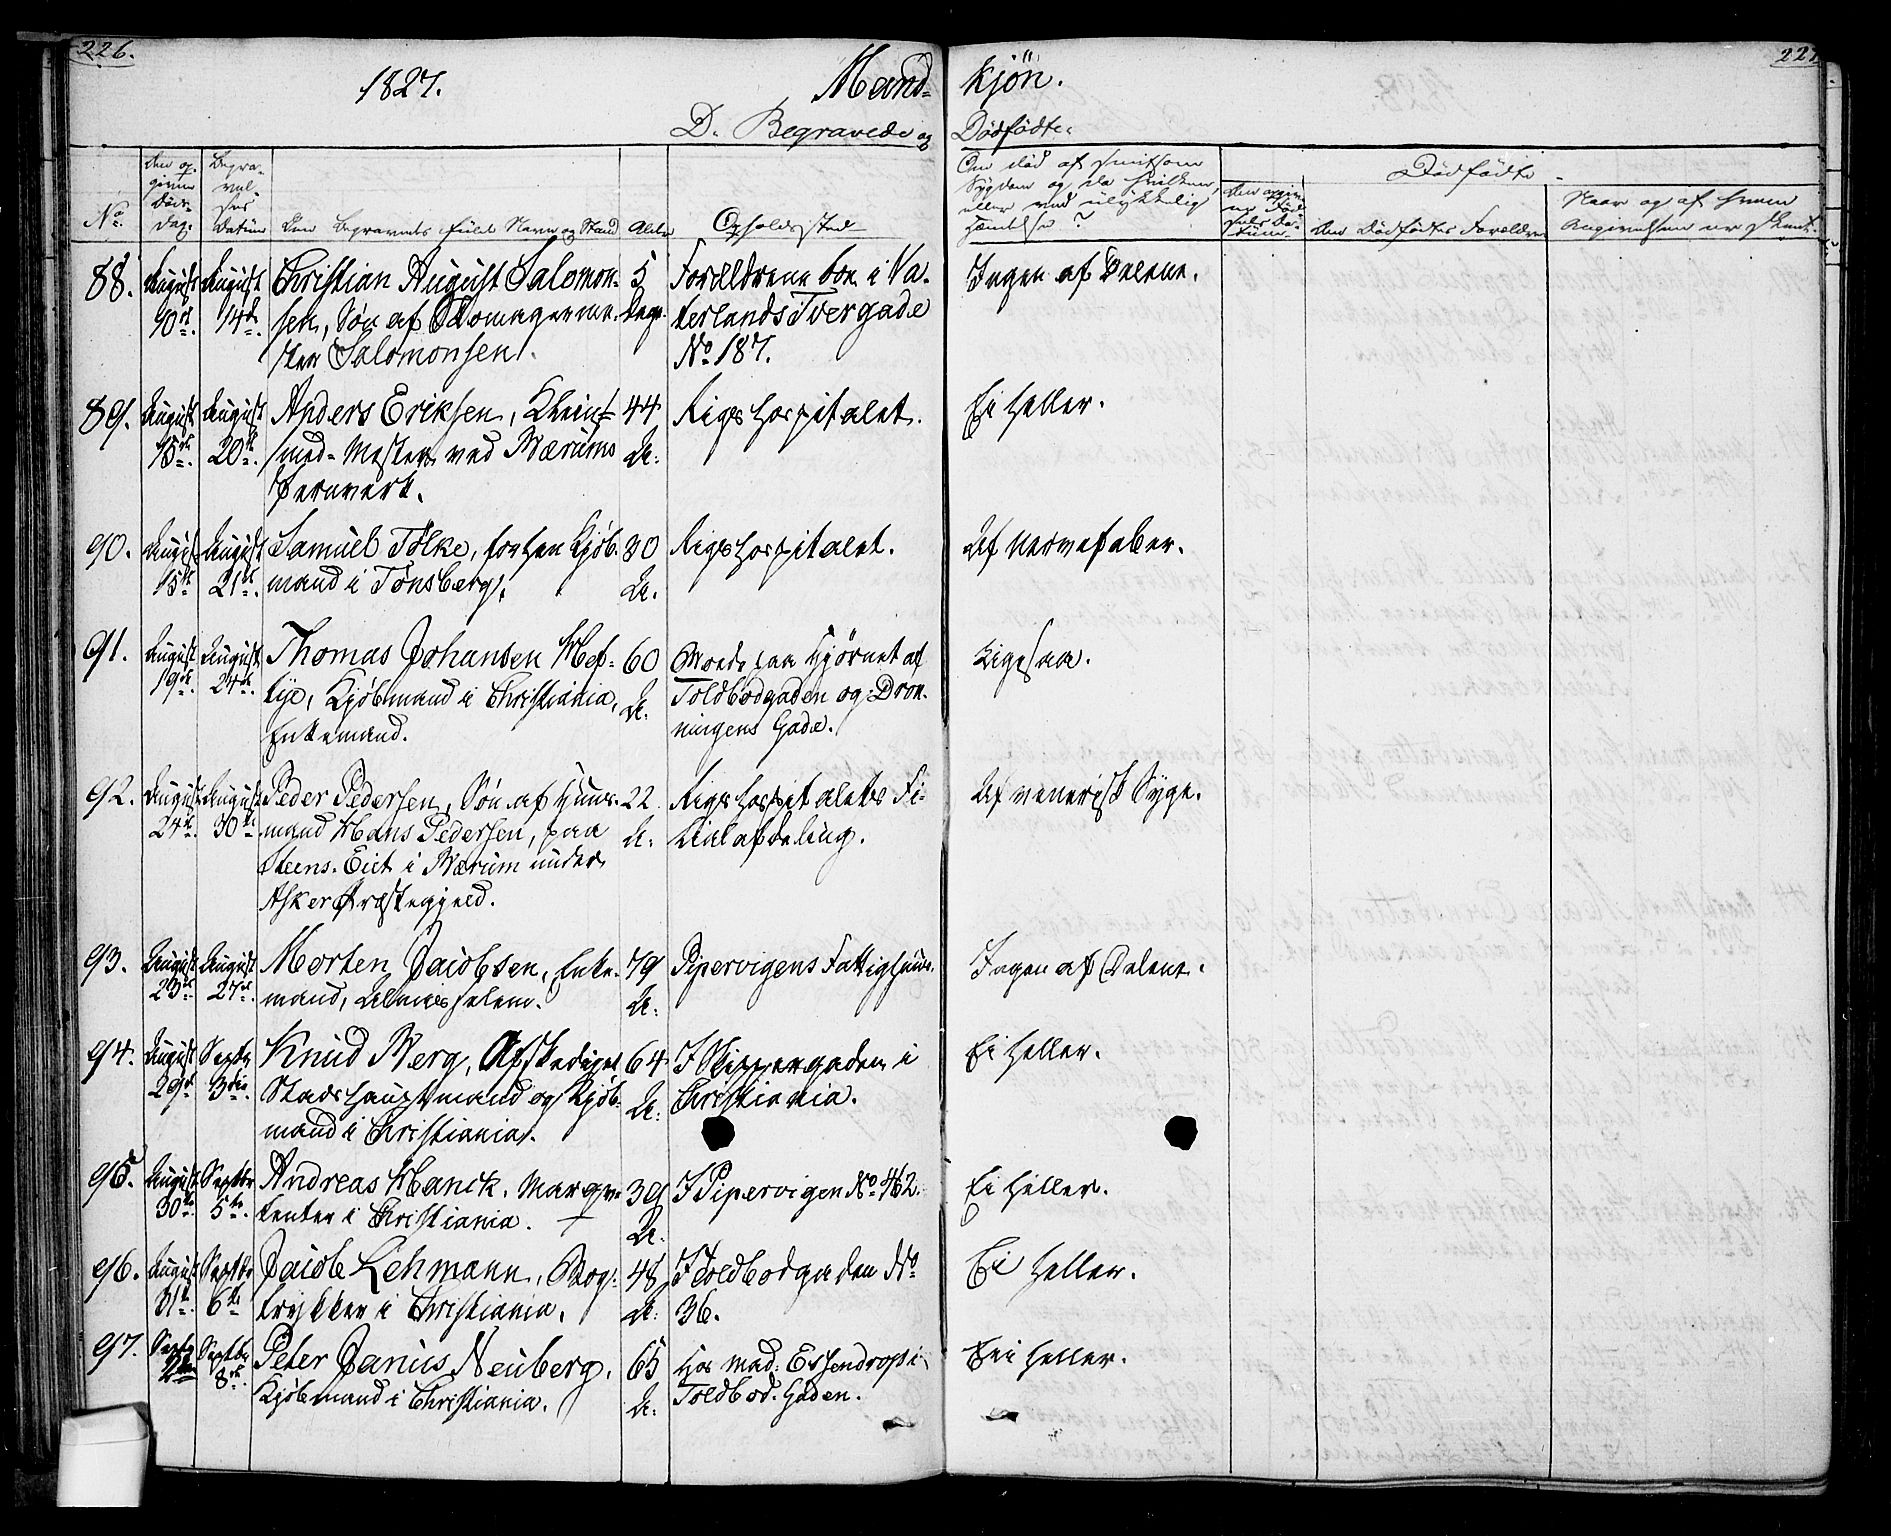 226.
227
1827.
Mand-
kjön.
D. Begravede og
Dödfödte.
No.
Den op-
givne
Døds-
Dag.
Begra-
vel-
ses
Datum
Den Begravnes fulde Navn og Stand
Alder
Opholdssted
Om död af smitsom
Sygdom og da hvilken,
eller ved ulykkelig
Hændelse?
Dödfödte.
Den opgiv-
ne Föd-
sels Da-
tum.
Den Dödfödtes Forældre
Naar og af hvem
Angivelsen er skeet.
88.
August
10de.
August
14de.
Christian August Salomon-
sen, Søn af Skomagerme-
ster Salomonsen.
5
Dage.
Forældrene boe i Va-
terlands Tvergade
No. 187.
Ingen af Delene.
89.
August
15de.
August
20de.
Anders Eriksen, Klein-
smed-Mester ved Bærums
Jernverk.
44
A.
Rigshospitalet.
Ei heller.
90.
August
15de
August
21de.
Samuel Tölke, forhen Kjöb-
mand i Tönsberg.
30
A.
Rigshospitalet.
Af Nervefeber.
91.
August
19de.
August
24de.
Thomas Johansen Hef-
tye, Kjöbmand i Christiania,
Enkemand.
60
A.
Boede paa Hjörnet af
Toldbodgaden og Dron-
ningens Gade.
Ligesaa.
92.
August
24de.
August
30te
Peder Pedersen, Søn af Huus-
mand Hans Pedersen, paa
Steens-Eiet i Bærum under
Asker Præstegjeld.
22
A.
Rigshospitalets Fi-
lialafdeling.
Af venerisk Syge.
93.
August
23de
August
27de.
Morten Jacobsen, Enke-
mand, Almisselem.
79
A.
Pipervigens Fattighuus.
Ingen af Delene.
94.
August
29de
Septbr
3die.
Knud Berg, Afskediget
Stadshauptmand og Kjöb-
mand i Christiania.
64
A.
I Skippergaden i
Christiania.
Ei heller.
95.
August
30te.
Septbr
5te.
Andreas Hanck, Marque-
tenter i Christiania.
39
A.
I Pipervigen No. 462.
Ei heller.
96.
August
31te.
Septbr
6te
Jacob Lehmann, Bog-
trykker i Christiania.
48
A.
I Toldbodgaden No.
36.
Ei heller.
97.
Septbr
Septbr
8de.
Peter Janus Neuberg,
Kjöbmand i Christiania.
65
A.
Hos Mad: Essendrop i
Toldbod-Gaden.
Ei heller.